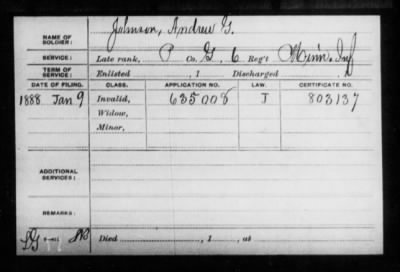 NAME OF SOLDIER: Johnson, Andrew G.
SERVICE: Late rank, P Co. G, 6 Reg't Minn. Inf
TERM OF SERVICE: Enlisted , 1 Discharged , 1
DATE OF FILING. CLASS. APPLICATION NO. LAW. CERTIFICATE NO.
1888 Jan 9 Invalid, 635008 J 803137
Widow,
Minor,
ADDITIONAL SERVICES:
REMARKS:
Died , 1 , at